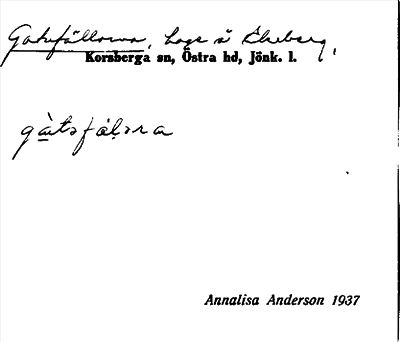 Gatufällorna, hage å Ekeberg,
Korsberga sn, Östra hd, Jönk. l.
gàtsfálsra
Annalisa Anderson 1937